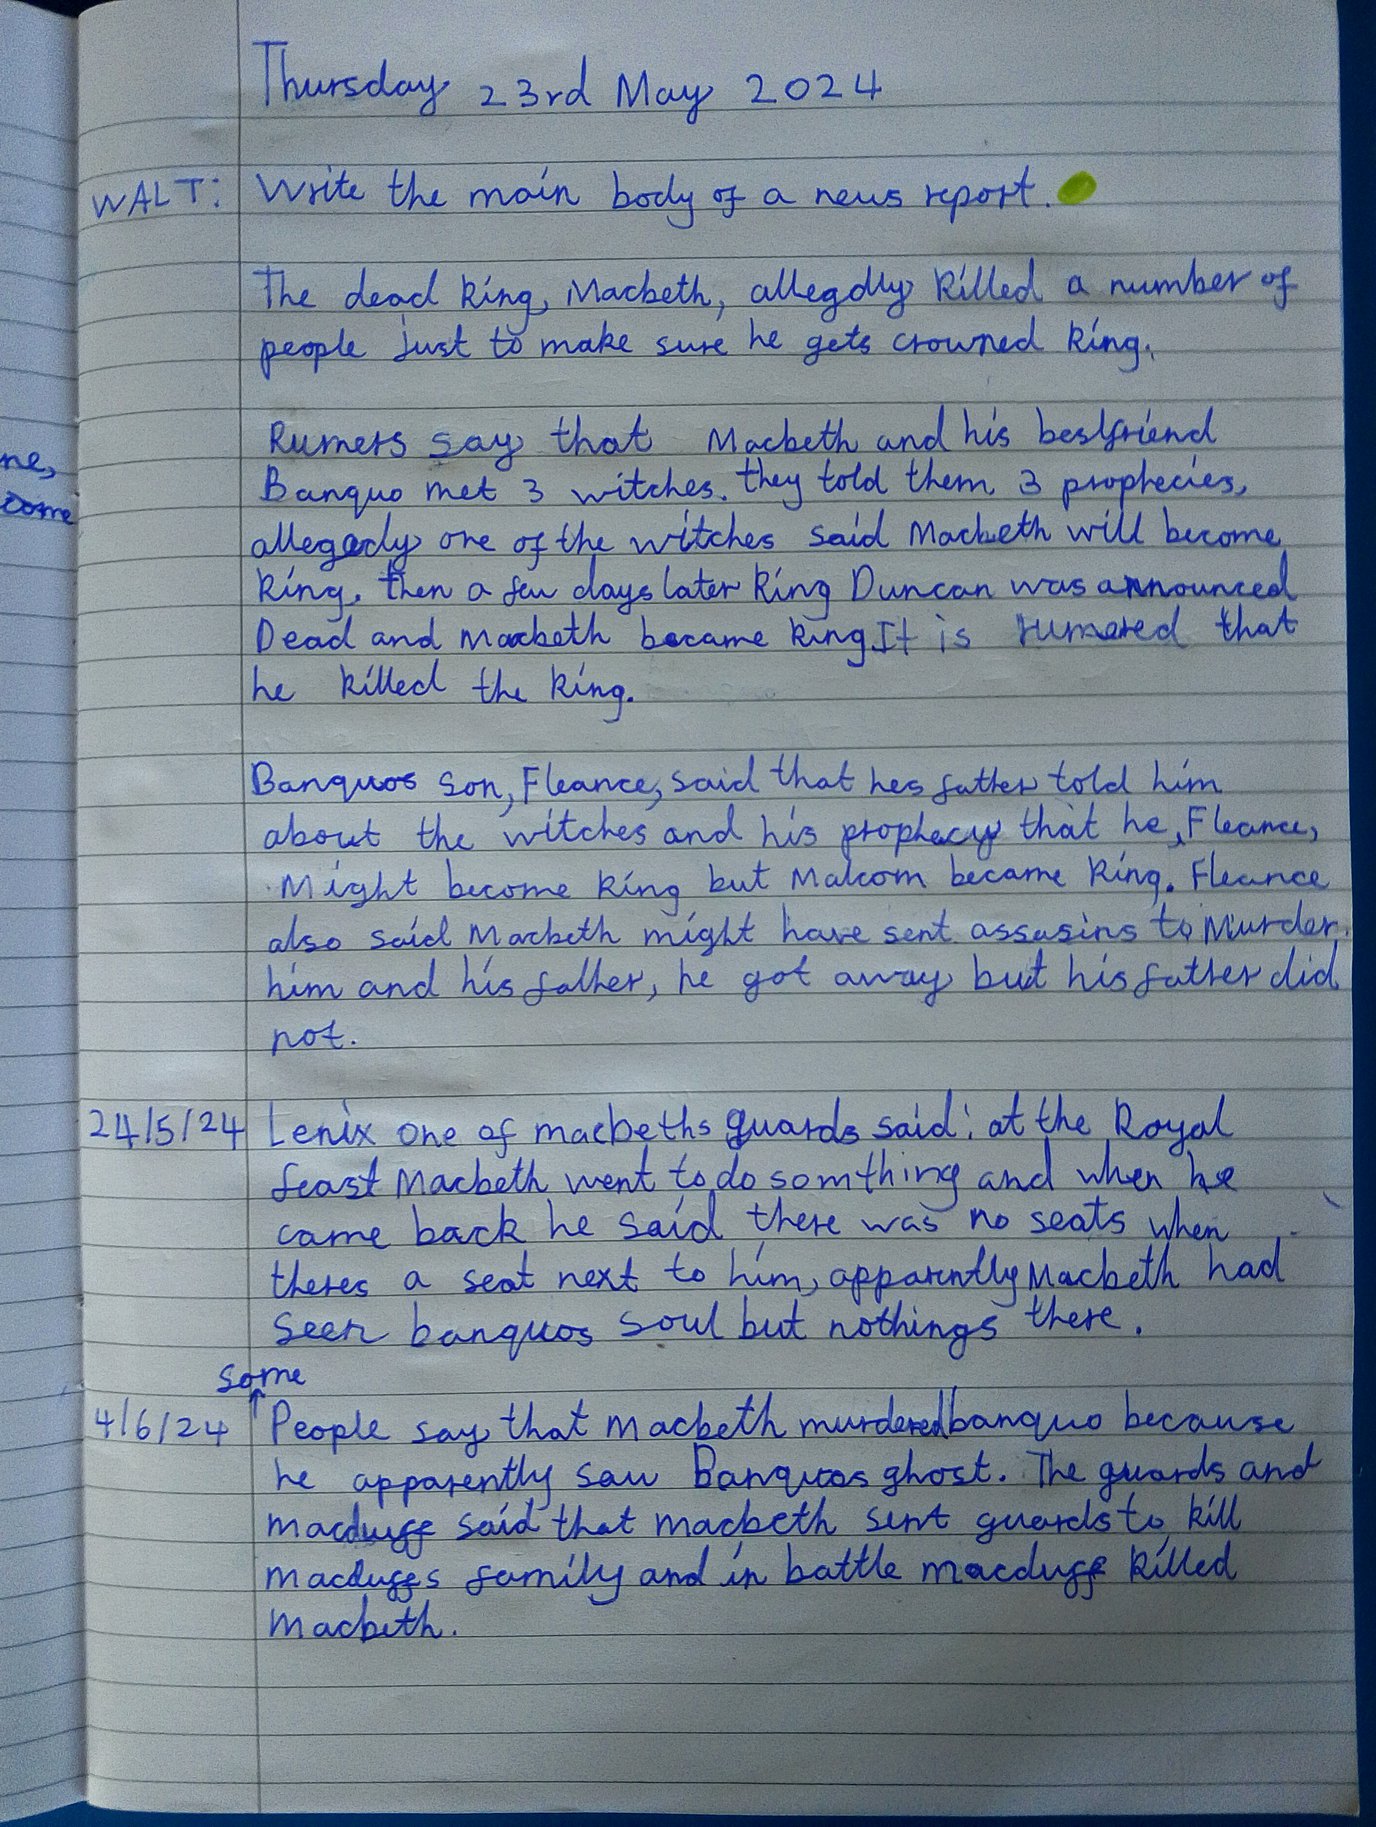 Thursday 23rd May 2024
WALT: Write the main body of a news report.
The dead king, Macbeth, allegdly killed a number of
people just to make sure he gets crowned king.
Rumers say that Macbeth and his bestfriend
ne,
Banquo met 3 witches. they told them 3 prophecies,
come
allegedly one of the witches said Macbeth will become
king. then a few days later king Duncan was announced
Dead and Macbeth became king It is rumered that
he killed the king.
Banquos son, Fleance, said that hes father told him
about the witches and his prophecy that he, Fleance,
Might become king but Malcom became king. Fleance
also said Macbeth might have sent assasins to Murder
him and his father, he got away but his father did
not.
24/5/24 Lenix one of macbeths guards said: at the Royal
feast Macbeth went to do somthing and when he
came back he said there was no seats when
theres a seat next to him, apparently Macbeth had
seen banquos soul but nothings there.
some
4/6/24 People say that Macbeth murdered banquo because
he apparently saw Banquos ghost. The guards and
macduff said that macbeth sent guards to kill
macduffs family and in battle macduff killed
Macbeth.